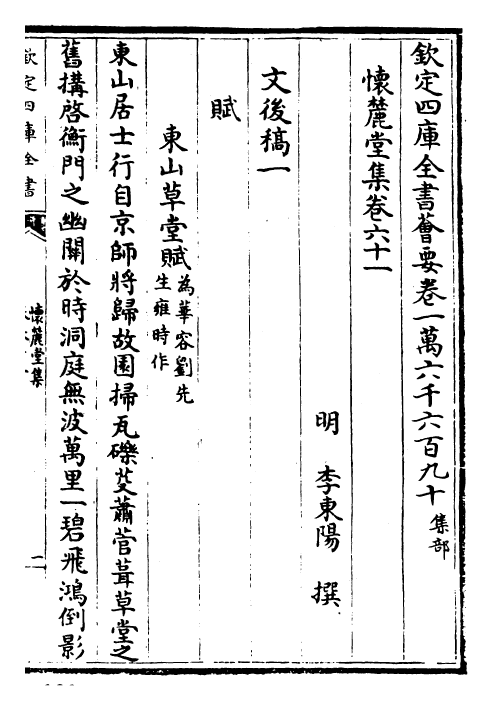 欽定四庫全書薈要卷一萬六千六百九十集部
懷麓堂集卷六十一
明 李東陽 撰
文後稿一
賦
東山草堂賦為華容劉先生雍時作
東山居士行自京師將歸故園掃瓦礫芟蕭菅葺草堂之
舊搆啓衡門之幽關於時洞庭無波萬里一碧飛鴻倒影
欽定四庫全書
懷麓堂集